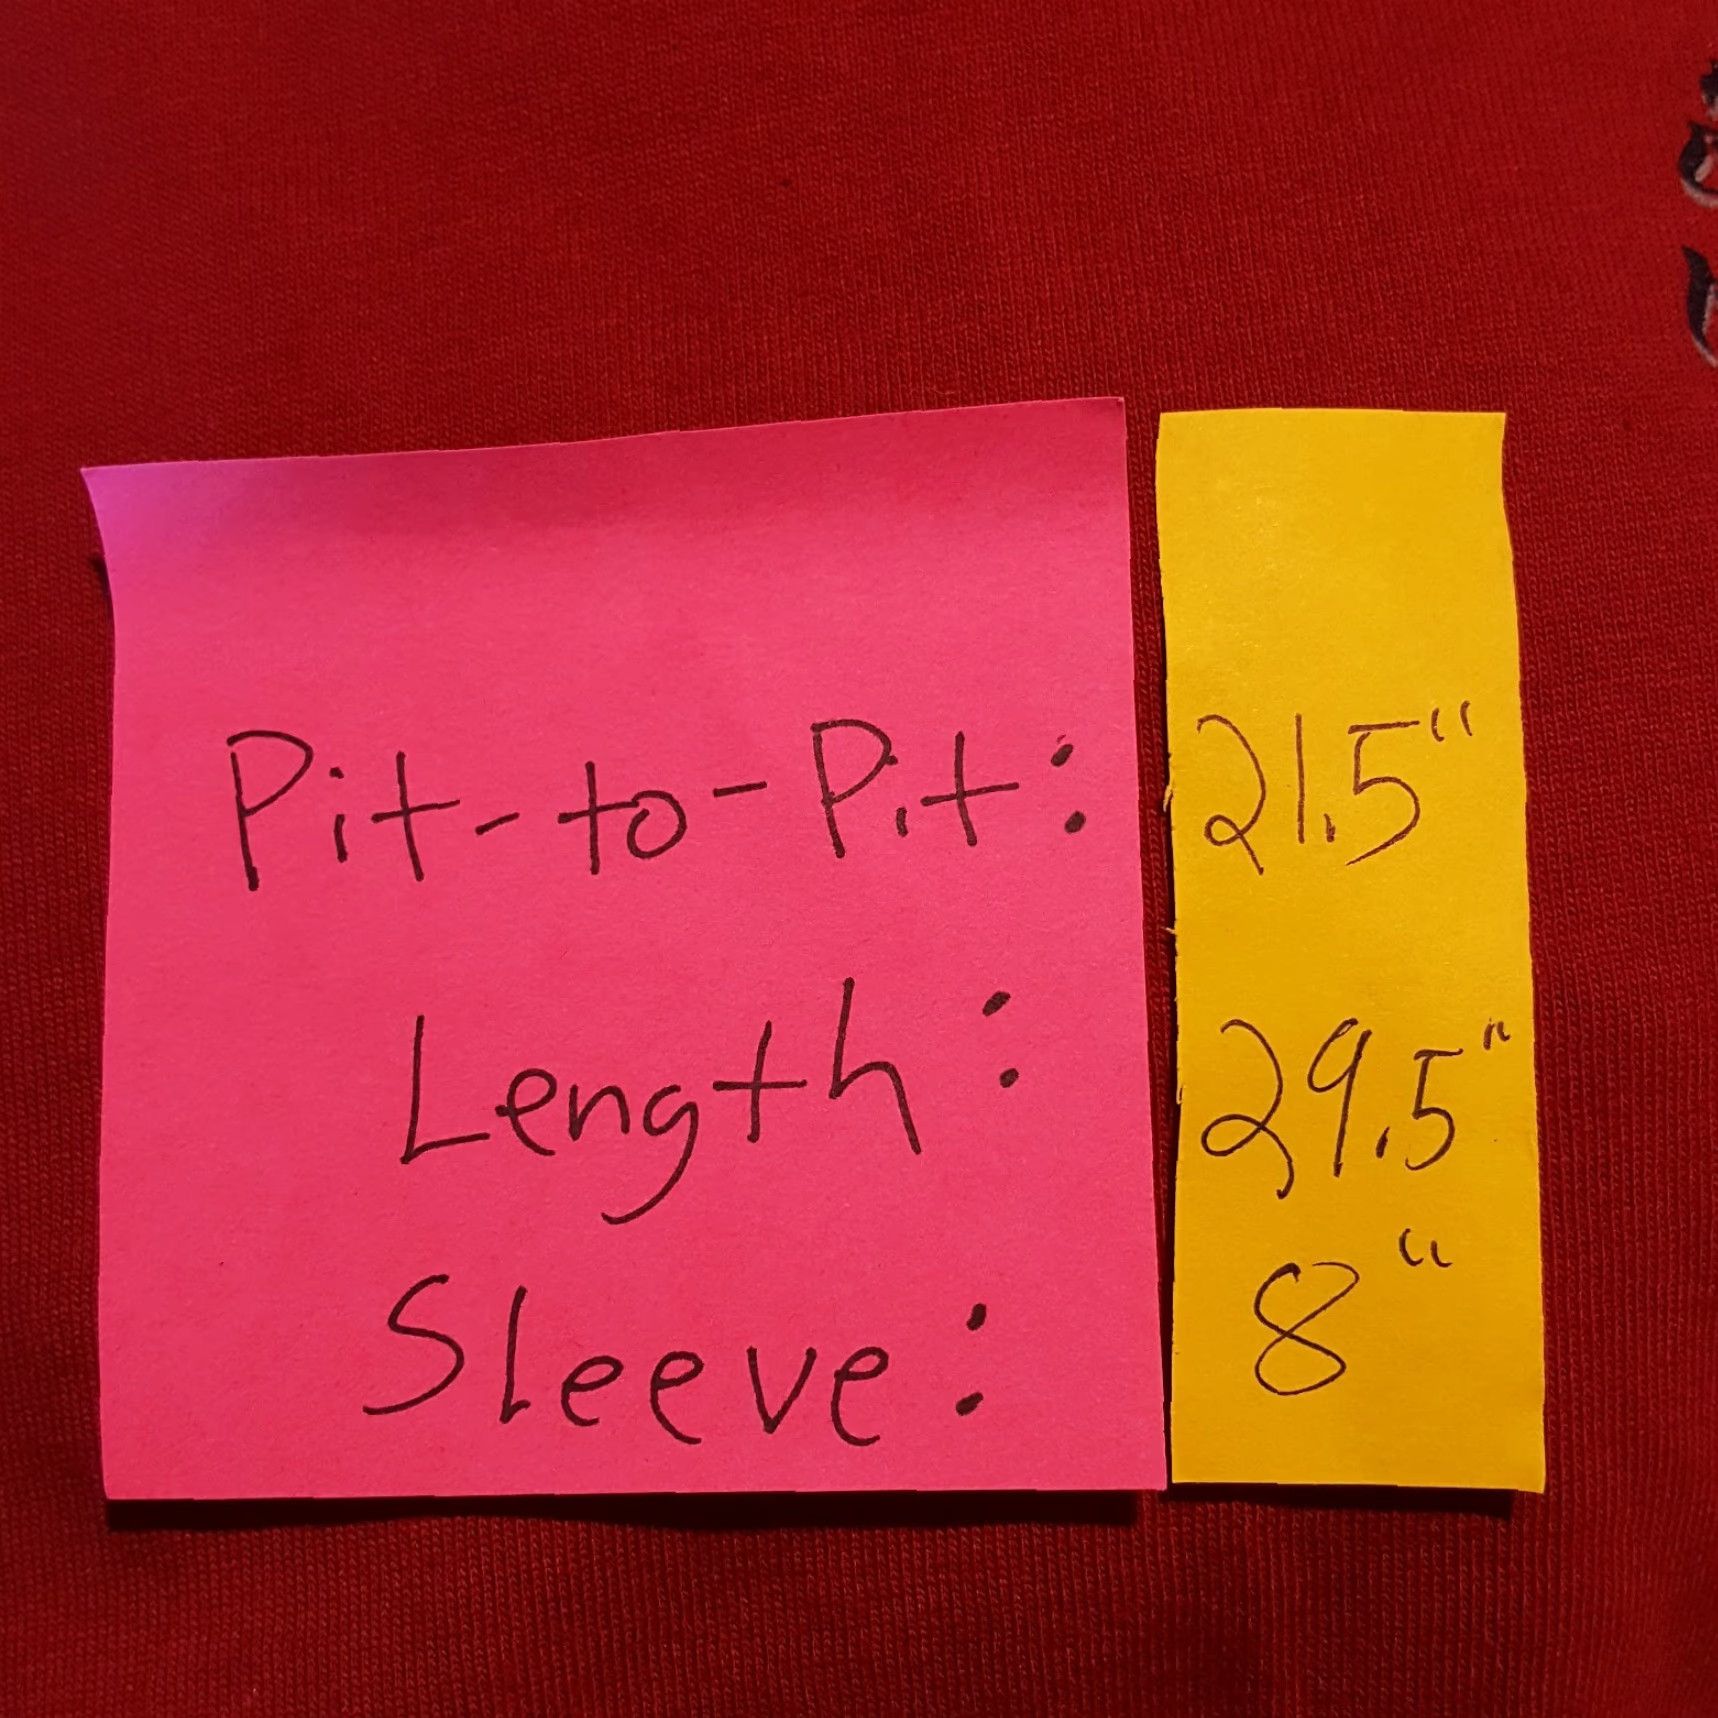 Pit-to-Pit: 21.5"
Length: 29.5"
Sleeve: 8"